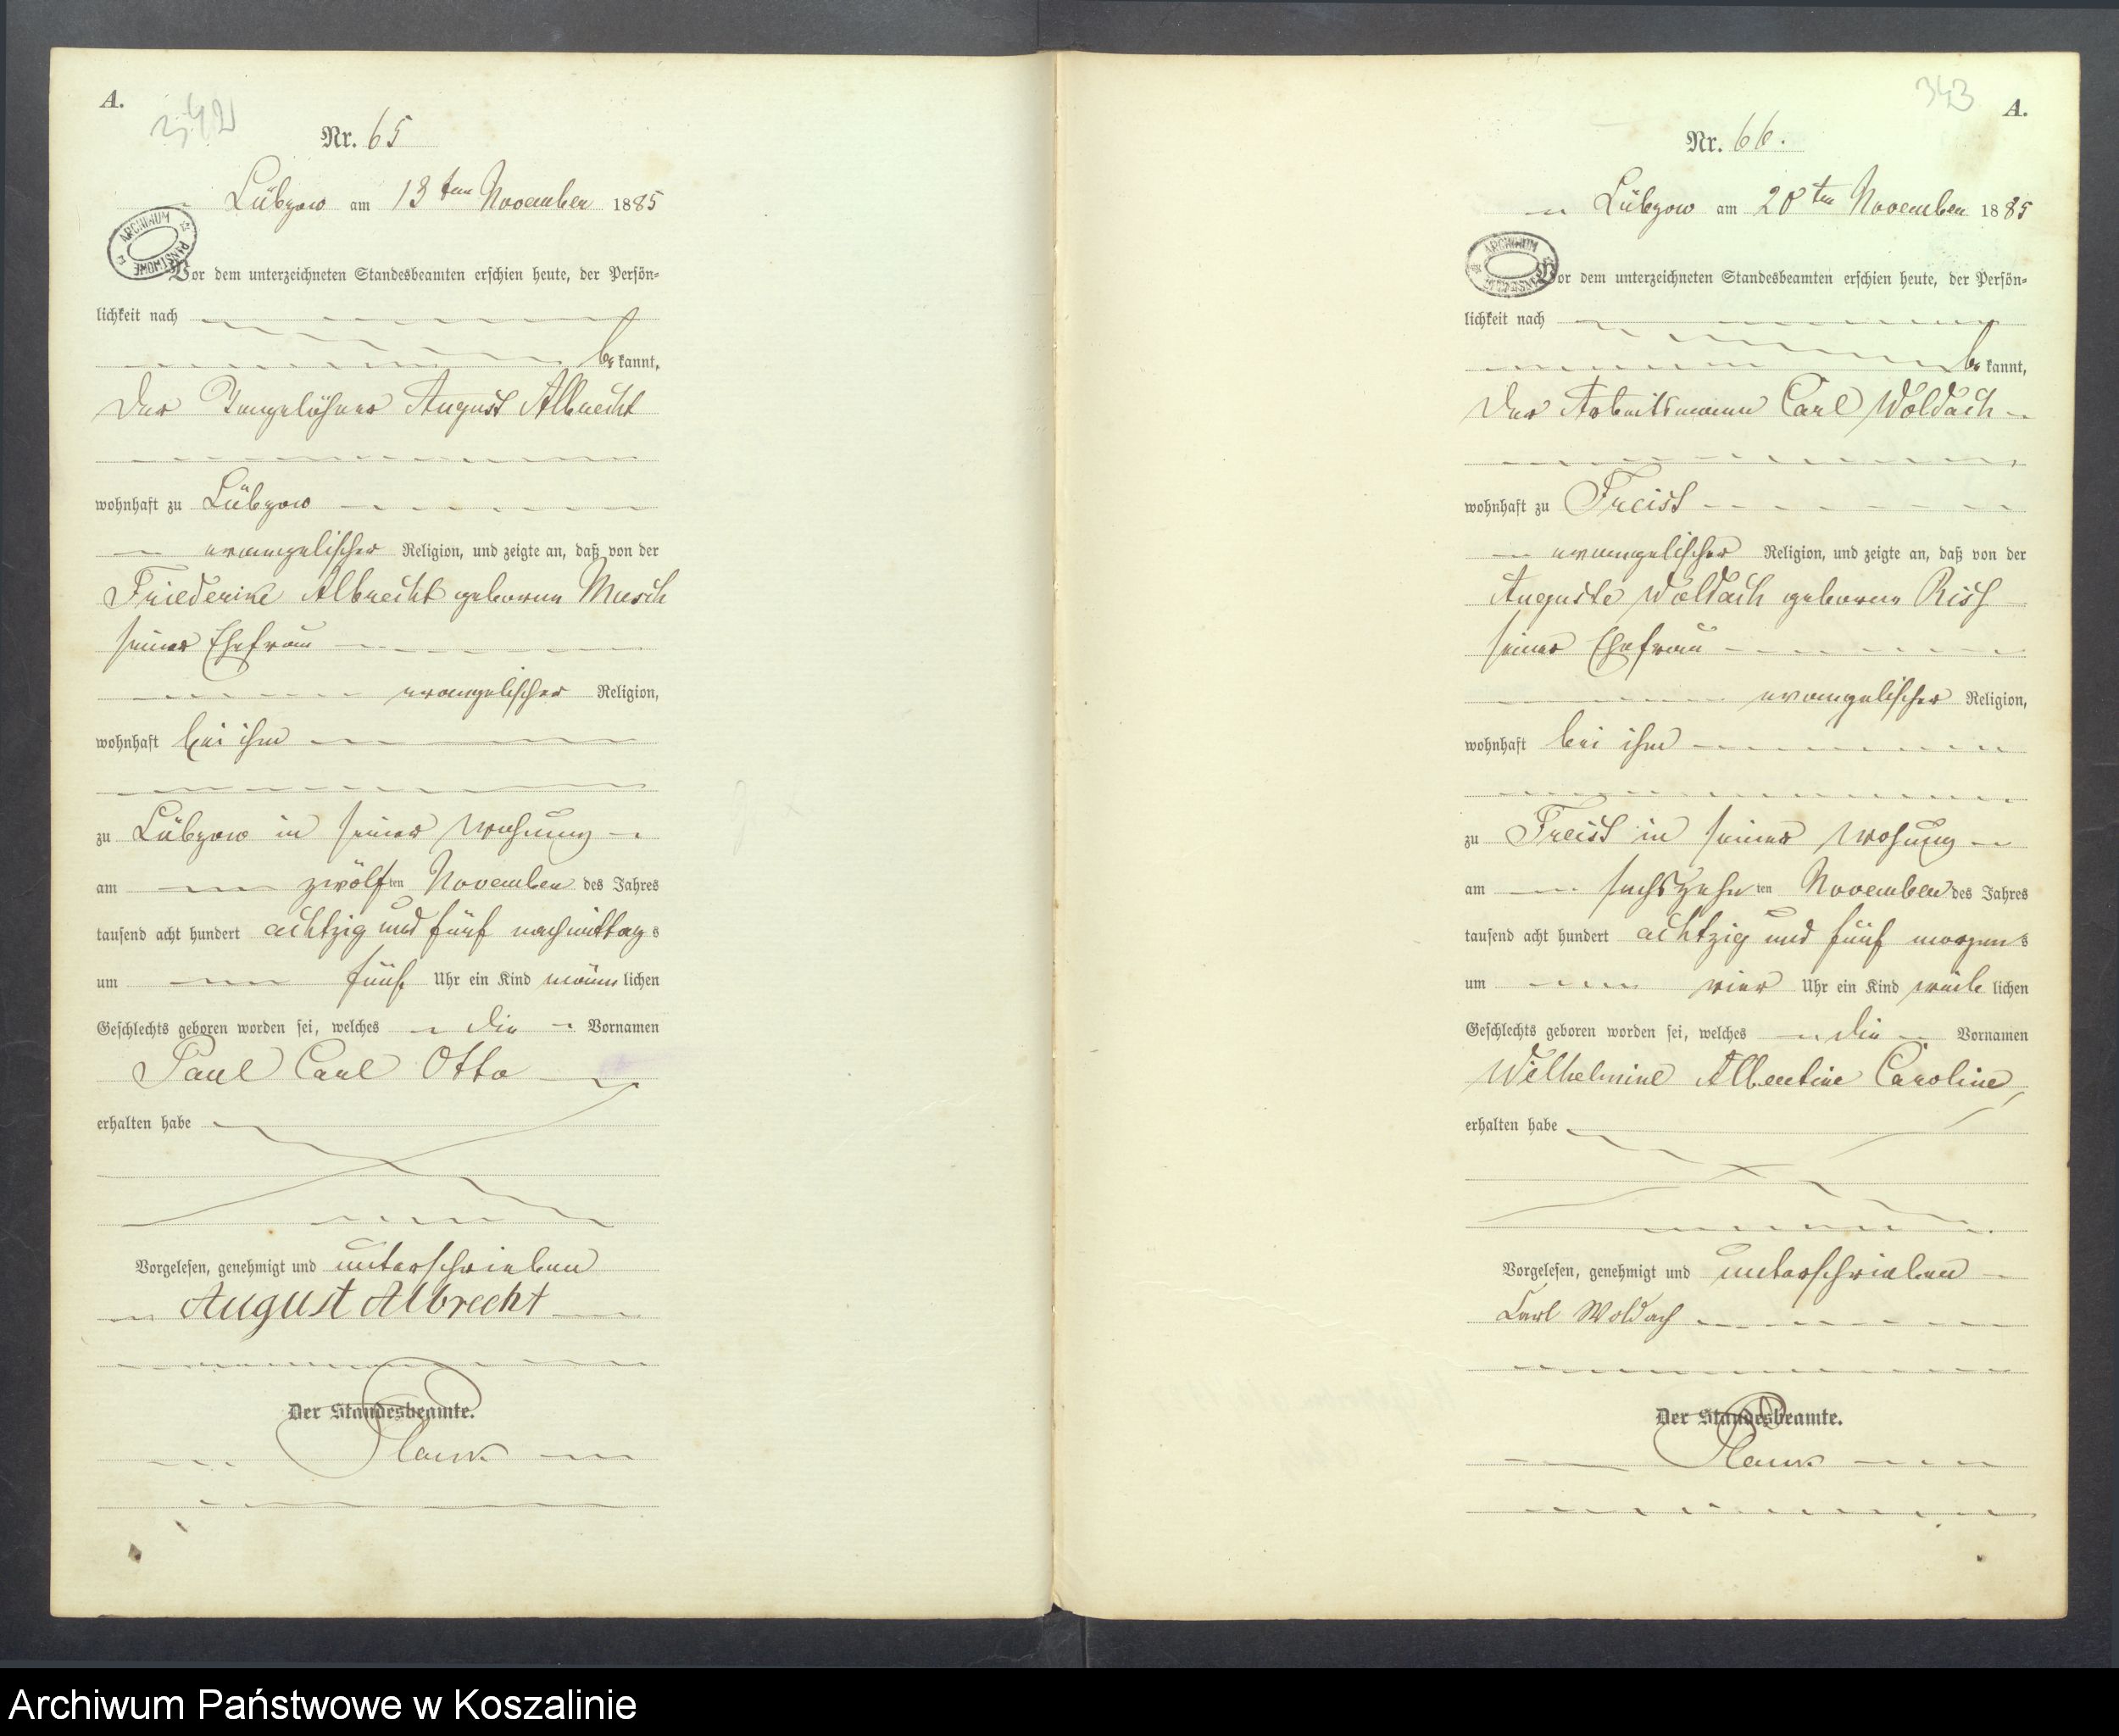 A.
342
Nr. 65
Lübzow am 13ten November 1885
ARCHIWUM PAŃSTWOWE
Vor dem unterzeichneten Standesbeamten erschien heute, der Persön-
lichkeit nach
bekannt,
der August Albrecht
wohnhaft zu Lübzow
evangelischer Religion, und zeigte an, daß von der
Friederike Albrecht geborene Musch
seiner Ehefrau
evangelischer Religion,
wohnhaft bei ihm
zu Lübzow in seiner Wohnung
am zwölften November des Jahres
tausend acht hundert achtzig und fünf nachmittags
um fünf Uhr ein Kind männlichen
Geschlechts geboren worden sei, welches die Vornamen
Paul Carl Otto
erhalten habe
Vorgelesen, genehmigt und unterschrieben
August Albrecht
Der Standesbeamte.
343
A.
Nr. 66.
Lübzow am 20ten November 1885
ARCHIWUM PAŃSTWOWE
Vor dem unterzeichneten Standesbeamten erschien heute, der Persön-
lichkeit nach
bekannt,
der Arbeitsmann Carl Woldach
wohnhaft zu Freist
evangelischer Religion, und zeigte an, daß von der
Auguste Woldach geborene
seiner Ehefrau
evangelischer Religion,
wohnhaft bei ihm
zu Freist in seiner Wohung
am sechszehnten November des Jahres
tausend acht hundert achtzig und fünf morgens
um vier Uhr ein Kind weiblichen
Geschlechts geboren worden sei, welches die Vornamen
Wilhelmine Albertine Caroline
erhalten habe
Vorgelesen, genehmigt und unterschrieben
Carl Woldach
Der Standesbeamte.
Archiwum Państwowe w Koszalinie